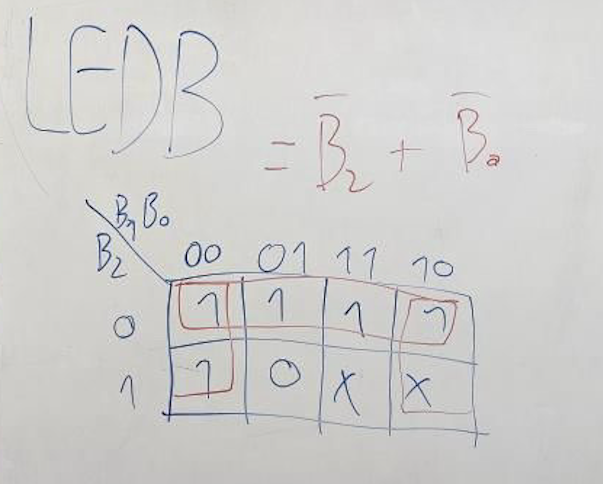 LEDB
= B̅₂ + B̅₀
B₁ B₀
B₂
00 01 11 10
0 1 1 1 1
1 1 0 X X